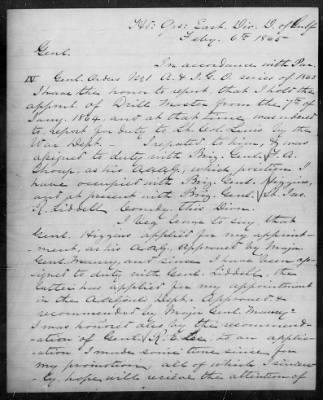 Hd: Qrs: East. Div. D. of Gulf
Feby. 6th 1865
Genl.
In accordance with Par.
IV Genl. Orders No1 A. & I. G. O. series of 1865
I have the honor to report that I hold the
appmt of Drill Master from the 7th of
Jany. 1864, and at that time was ordered
to report for duty to by the
War Dept. - I repaired to him, & was
assigned to duty with Brig. Genl. F. A.
Shoup, as his AAAG, which position I
have occupied with Brig. Genl. Higgins,
and at present with Brig. Genl. St. Jno.
R. Liddell Comdg this Divn.
I beg leave to say that
Genl. Higgins applied for my appoint-
ment, as his AAG, approved by Major
Genl. Maury, and since I have been as-
signed to duty with Genl. Liddell, the
latter has applied for my appointment
in the Adjt. Genls. Dept. Approved &
recommended by Major Genl. Maury-
I was honored also by the recommend-
ation of Genl. R. E. Lee, to an applic-
ation I made some time since for
my promotion, all of which I sincere-
ly hope will receive the attention of